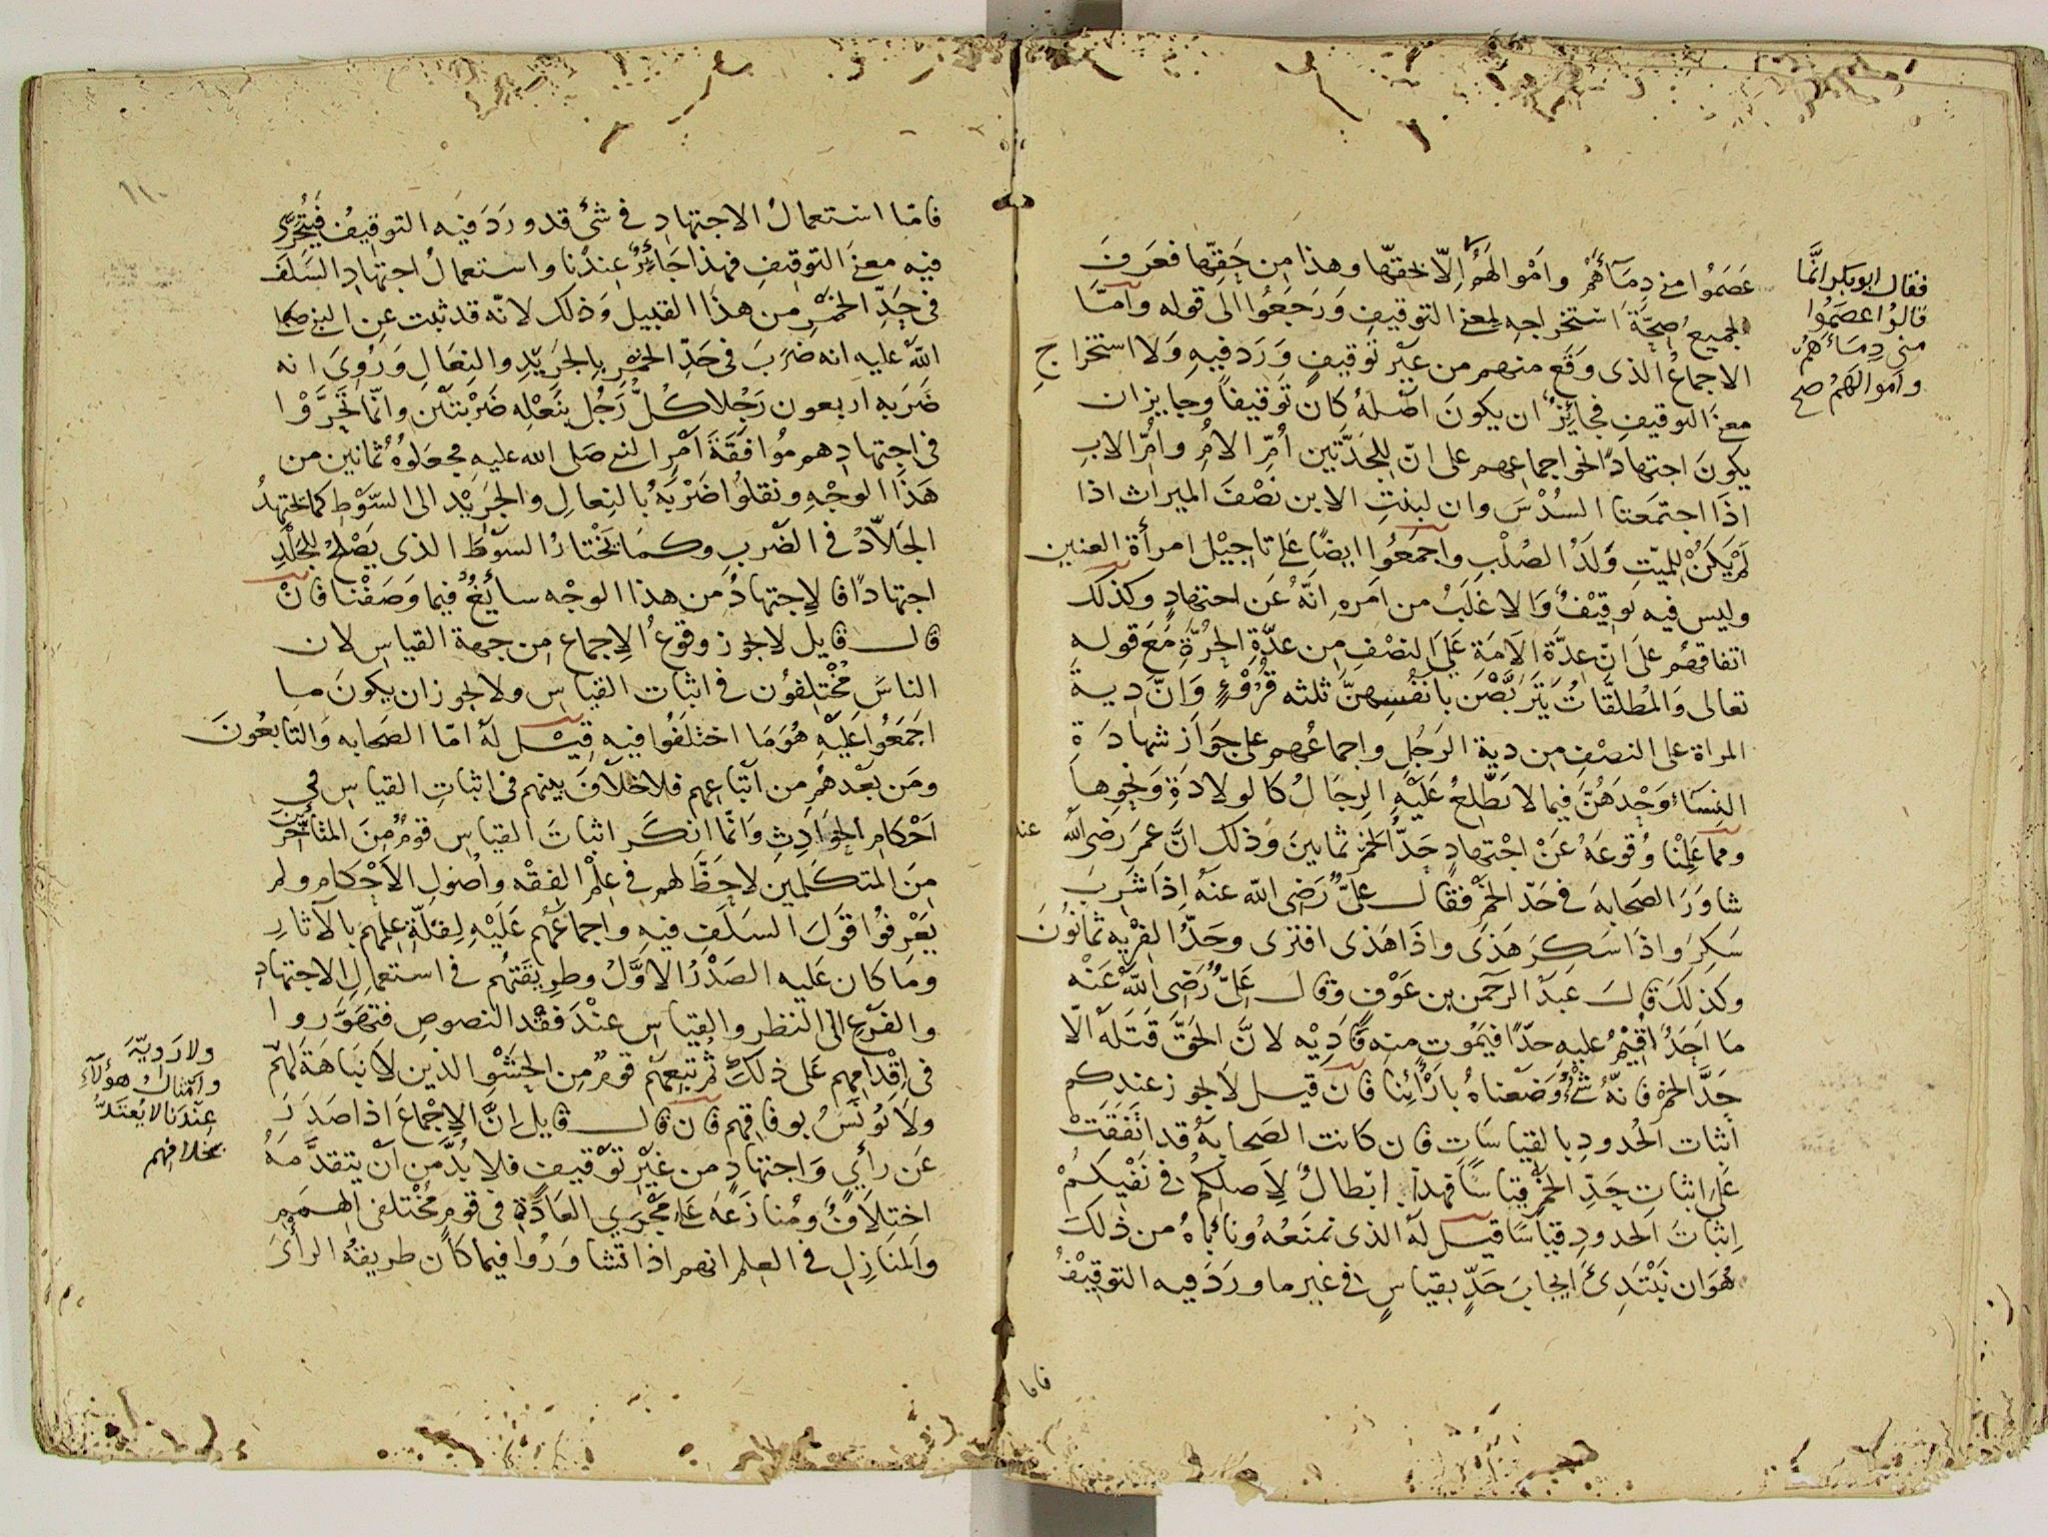 عَصَمُوا مني دِمَآئَهُمْ وامْوالَهُمْ اِلّا بحقّها وهذا من حَقِّها فعَرفَ
الجميع صِحَّةَ اسْتخراجِهِ لمعنى التوقيفِ وَرَجَعُوا الى قوله وامّا
الاجماعُ الذى وَقَع منهم من غَيْر توقيفٍ وَرَد فيهِ وَلا استخراجِ
معنى التوقيفِ فجائِزٌ ان يكونَ اصْلهُ كان تَوقيفاً وجايز ان
يكونَ اجتهادًا نحو اجماعهم على انّ لِلجَدَّتين أُمِّ الامِ وامِّ الابِ
اذَا اجتمَعتا السُدْسَ وان لبنتِ الابن نصْفَ الميراث اذا
لَمْ يَكُنْ لِلميّتِ وَلَدُ الصُلْبِ واجمَعُوا ايضًا على تاجِيْل امرأة العنين
وليس فيه توقِيْفٌ وَالاغلَبُ من اَمرهِ انَّهُ عَن اجتهادٍ وكذلك
اتفاقهُم على انّ عدّة الاَمَة عَلىَ النصْفِ من عدّةِ الحُرَّةِ مَعَ قوله
تعالى وَالمُطلقّاتُ يَتَربَّصْنَ بانفُسِهِنَّ ثلثه قُرُوْءٍ وَانّ دِيةَ
المراة على النصْفِ من دية الرَجُلِ واجماعُهم على جَوَازِ شهادَةِ
النِسَآءِ وَحْدَهُنَّ فيما لا يَطَّلِعُ عَلَيْهِ الرِجَالُ كالولادَةِ وَنحوِها
ومما عَلِمْنا وُقوعَهُ عَنْ اجْتهادٍ حَدُّ الخمْرِ ثمانينَ وَذلك انَّ عمَرَ رضى الله عنه
شاوَرَ الصَحابهَ في حَدّ الخَمْرِ فقال علىٌّ رَضِى الله عنهُ اِذَا شَرِبَ
سَكِرَ واذَا سَكِرَ هَذَى واذَا هَذى افترى وحَدُّ الفِرْيهِ ثمانُونَ
وكذلكَ قالَ عبدُ الرحمن بن عَوْفٍ وقال عَلىٌّ رَضِى اللهُ عَنْه
مَا اَحَدٌ اُقِيْمُ عليهِ حدًّا فيَمُوت منه فَادِيْهِ لانَّ الحَقَّ قَتَلَهُ الّا
حَدَّ الخمْرِ فانّهُ شَئٌ وَضَعناهُ بارَائِنا فان قيل لا يجوز عندكم
اثبات الحُدودِ بالقياسَات فان كانت الصَحابهُ قد اتّفَقَتْ
عَلَى اثباتِ حَدِّ الخَمْر قياسًا فهذا ابْطالٌ لأَصلِكُم في نَفْيكُمْ
اِثباتَ الحدودِ قياسًا قيل لهُ الذى نمنَعُهُ ونأباهُ من ذلك
هُوَ ان نَبْتَدِئَ ايجابَ حَدٍّ بقياسٍ في غير ما ورَدَ فيه التوقِيْفُ
فاما
فقال ابوبكر انَّما
قالوُا عصَمُوا
منى دِمَائَهُمْ
وامْوالَهُمْ صح
فامّا استعمالُ الاجتهادِ في شئٍ قد ورَدَ فيه التوقيفُ فَيُتحرَّى
فيه معنى التوقيفِ فهذا جَائِزٌ عِنْدَنا واستعمالُ اجتهادِ السَلَفِ
في حَدِّ الخمْرِ من هذا القبيل وَذلك لانّه قد ثبت عن النبي صلى
اللهُ عليه انه ضَرَبَ في حَدِّ الخمْرِ بالجَرِيْدِ والنِعَالِ وَرُوِىَ انه
ضَرَبه اربعون رَجُلا كُلُّ رَجُلٍ بنَعْلِه ضَرْبَتَيْن وانّما تَحَرَّوْا
في اجتهادِهم مُوَافَقَةَ اَمْرِ النبي صَلى الله عليهِ فجعَلوُهُ ثمانين من
هَذَا الوجْهِ ونقلوُا ضَرْبَهُ بالنِعالِ والجَرِيْد الى السَّوْطِ كما يجتهِدُ
الجَلّادُ في الضَربِ وكمَا يَخْتارُ السَوْطَ الذى يَصْلُحُ للجَلْدِ
اجتهادًا فالاِجتهادُ من هذا الوجْه سائِغٌ فيما وَصَفْنا فانْ
قال قايل لا يجوز وقوعُ الاِجماعِ من جهة القياسِ لان
الناسَ مُخْتلِفوُن في اثبات القياسِ ولا يجوز ان يكونَ ما
اجمَعُوا عَلَيْهِ هُوَ مَا اختلَفُوا فيهِ قِيْل لهُ امّا الصَحابه وَالتابعُونَ
ومَن بعْدَهُم من اَتْبَاعِهم فلا خلاَفَ بينهم في اثباتِ القياسِ في
اَحْكامِ الحَوَادِثِ وَانّما انكَر اثباتَ القياسِ قومٌ مِنَ المتأخّرين
مِنَ المتكَلمين لاحَظَّ لهم في عِلْمِ الفِقْه واُصُولِ الأَحْكام ولم
يَعْرِفوُا قولَ السَلَفِ فيهِ واجماعَهُم عَلَيْهِ لِقلّةِ عِلمِهم بالآثارِ
ومَا كان عَليه الصَدْرُ الاوَّلُ وطرِيْقَتهُم في استعمالِ الاجتهادِ
والفزَعِ الى النظر والقِياسِ عنْدَ فقْد النصوصِ فتهَوَّروا
في اِقْدامِهِم عَلى ذلكَ ثُمَّ تبِعَهُمْ قومٌ مِن الحَشْو الذين لا نَبَاهَةَ لَهُمْ
ولاَ يُونَسُ بوِفاقِهم فان قال قايل انَّ الاِجْماعَ اذا صَدَرَ
عَن رأيٍ وَاجتهادٍ من غَيْرِ تَوْقيفٍ فلا بُدَّ من اَنْ يتقدَّمَهُ
اختِلاَفٌ ومُنازَعَه عَلى مَجْرَى العَادَةِ في قومٍ مُخْتلفى الهِمَمِ
والمنَازِلِ في العِلم انهم اذا تشاوَرُوا فيما كان طريقهُ الرأىَ
ولا رَوِيّةَ
وامْثالُ هؤلآءِ
عِنْدَنا لا يُعْتَدُّ
بخلافِهم